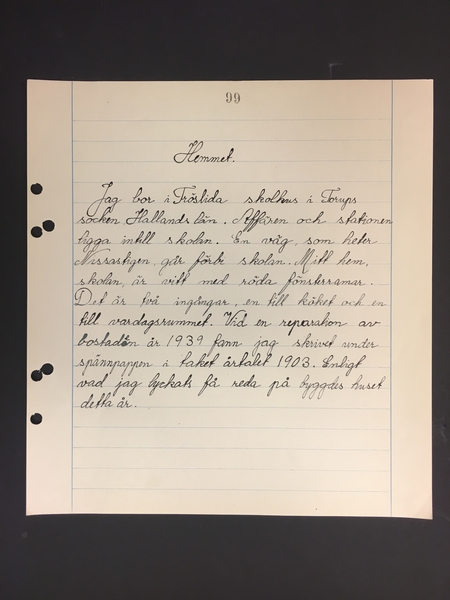 99
Hemmet.
Jag bor i Fröslida skolhus i Torups
socken, Hallands län. Affären och stationen
ligga intill skolan. En väg som heter
Nissastigen går förbi skolan. Mitt hem,
skolan, är vitt med röda fönsterramar.
Det är två ingångar, en till köket och en
till vardagsrummet. Vid en reparation av
bostaden år 1939 fann jag skrivet under
spännpappen i taket årtalet 1903. Enligt
vad jag lyckats få reda på byggdes huset
detta år.